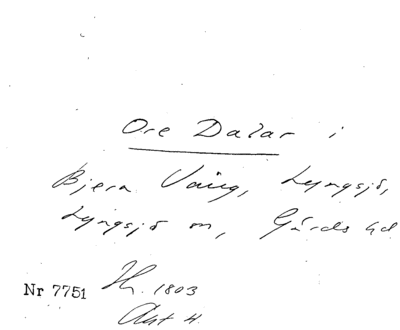 Ore Dalar i
Bjern Väng, Lyngsjö,
Lyngsjö m, Gärds hd
Nr 7751 H. 1803
Akt 4.